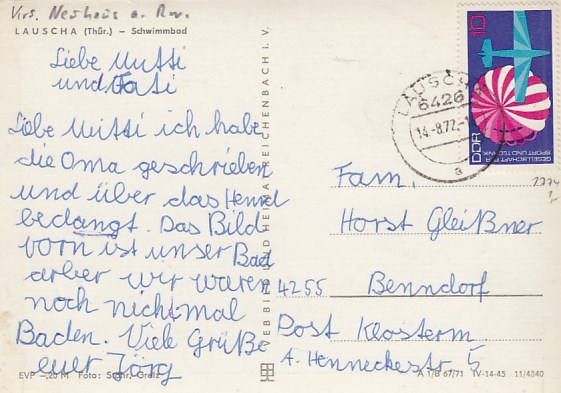 Krs. Neuhaus a. Rw.
LAUSCHA (Thür.) – Schwimmbad
Liebe Mutti
und Vati
Liebe Mitti ich habe
die Oma geschrieben
und über das Hemd
bedangt. Das Bild
vorn ist unser Bad
arber wir waren
noch nicht mal
Baden. Viele Grüße
euer Jörg
EVP –,20 M Foto: Stöhr, Greiz
VEB BILD UND HEIMAT REICHENBACH I. V.
LAUSCHA
6426
14.-8.72.-1
a
10
DDR
GESELLSCHAFT FÜR
SPORT UND TECHNIK
Fam.
Horst Gleißner
4255 Benndorf
Post Klosterm
A. Henneckestr 5
A 1/B 67/71 IV-14-45 11/4840